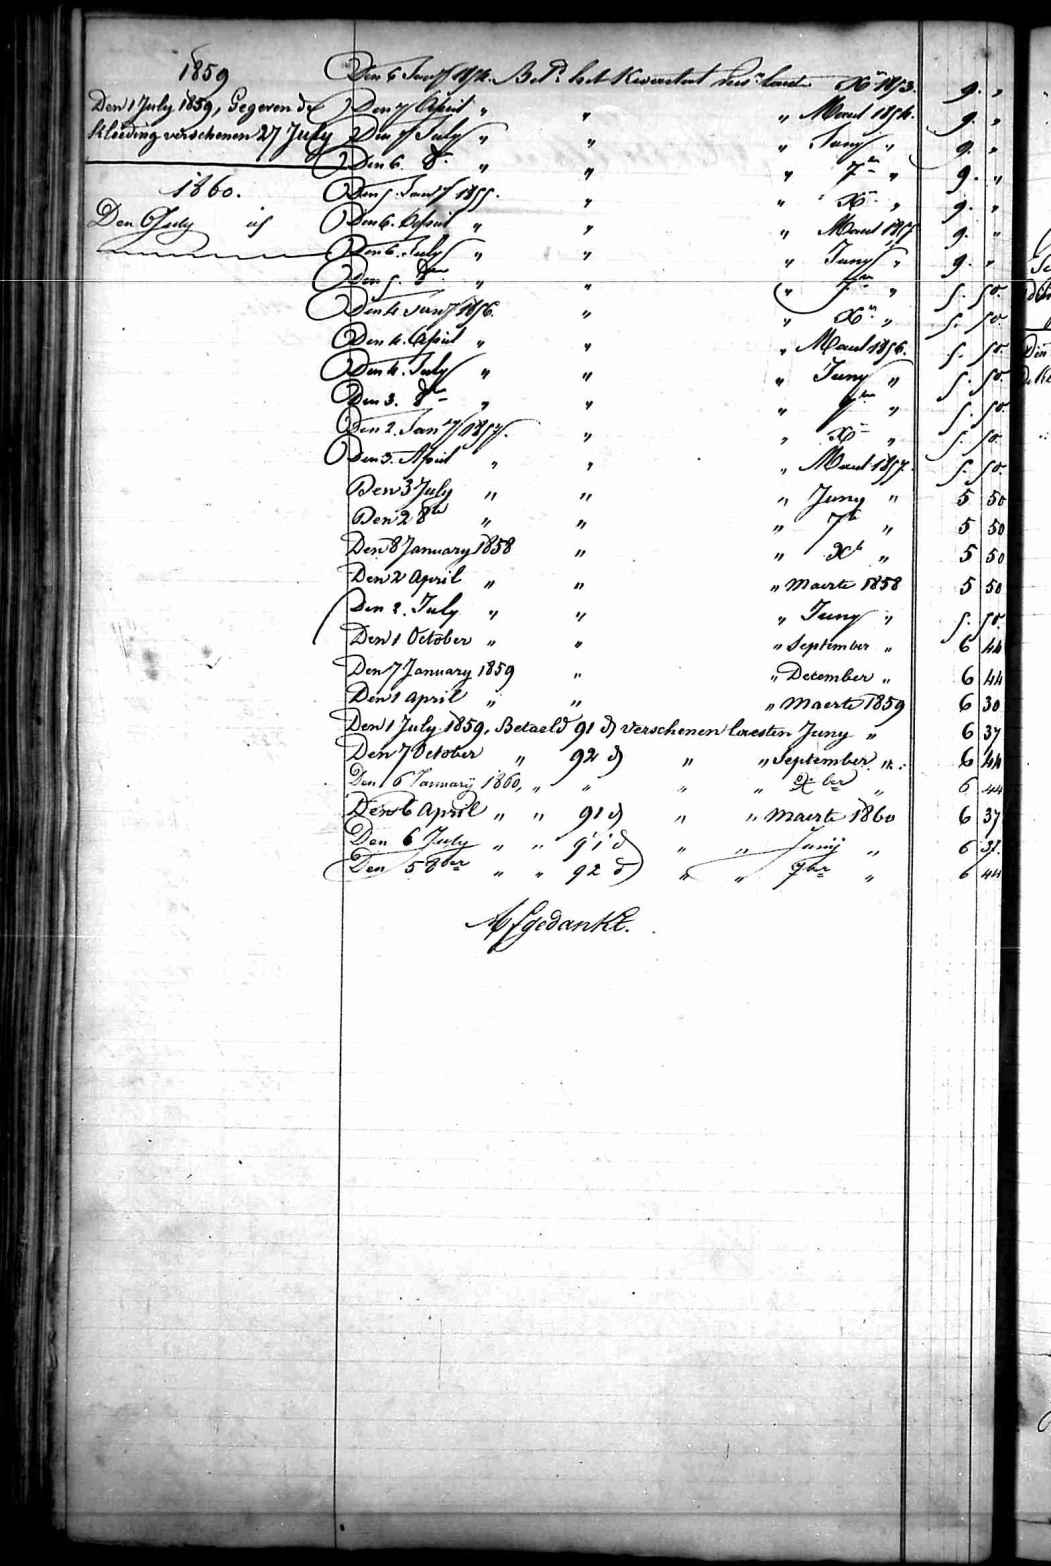 1859
Den 1 July 1859, Gegeven de
Kleeding verschenen 27 July
1860.
Den 6 July id
Den 6 Janry 1854. Betd. het Kwaertael laest Xbr 1853. 9. "
Den 7 April " " " Maert 1854. 9. "
Den 7 July " " " Juny " 9. "
Den 6. 8br " " " 7br " 9. "
Den 5. Janry 1855. " " Xbr " 9. "
Den 6. April " " " Maert 1855 9. "
Den 6. July " " " Juny " 9. "
Den 5. 8bre " " " 7bre " 5. 50.
Den 4 Janry 1856. " " Xbr " 5. 50.
Den 4. April " " " Maert 1856. 5. 50
Den 4. July " " " Juny " 5. 50
Den 3. 8bre " " " 7bre " 5. 50.
Den 2. Janry 1857. " " Xbr " 5. 50.
Den 3. April " " " Maert 1857. 5. 50.
Den 3 July " " " Juny " 5 50
Den 2 8br " " " 7br " 5 50
Den 8 January 1858 " " Xbr " 5 50
Den 2 April " " " Maerte 1858 5 50
Den 2. July " " " Juny " 5. 50.
Den 1 October " " " September " 6 44
Den 7 January 1859 " " December " 6 44
Den 1 April " " " Maerte 1859 6 30
Den 1 July 1859, Betaeld 91 d verschenen laesten Juny " 6 37
Den 7 October " 92 d " " September 6 44
Den 6 Januarij 1860, " " " " Xber " 6 44
Den 6 April " " 91 d " " Maerte 1860 6 37
Den 6 July " " 91 d " " Junij " 6 37.
Den 5 8ber " " 92 d " " 7ber " 6 44
Afgedankt.